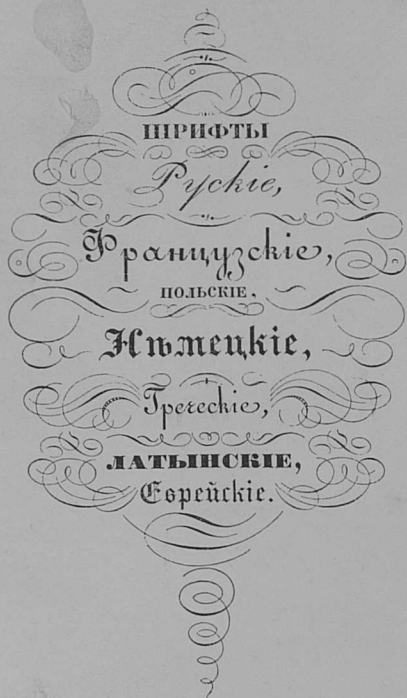 ШРИФТЫ
Рускіе,
Французскіе,
ПОЛЬСКІЕ,
Нѣмецкіе,
Греческіе,
ЛАТЫНСКІЕ,
Еврейскіе.